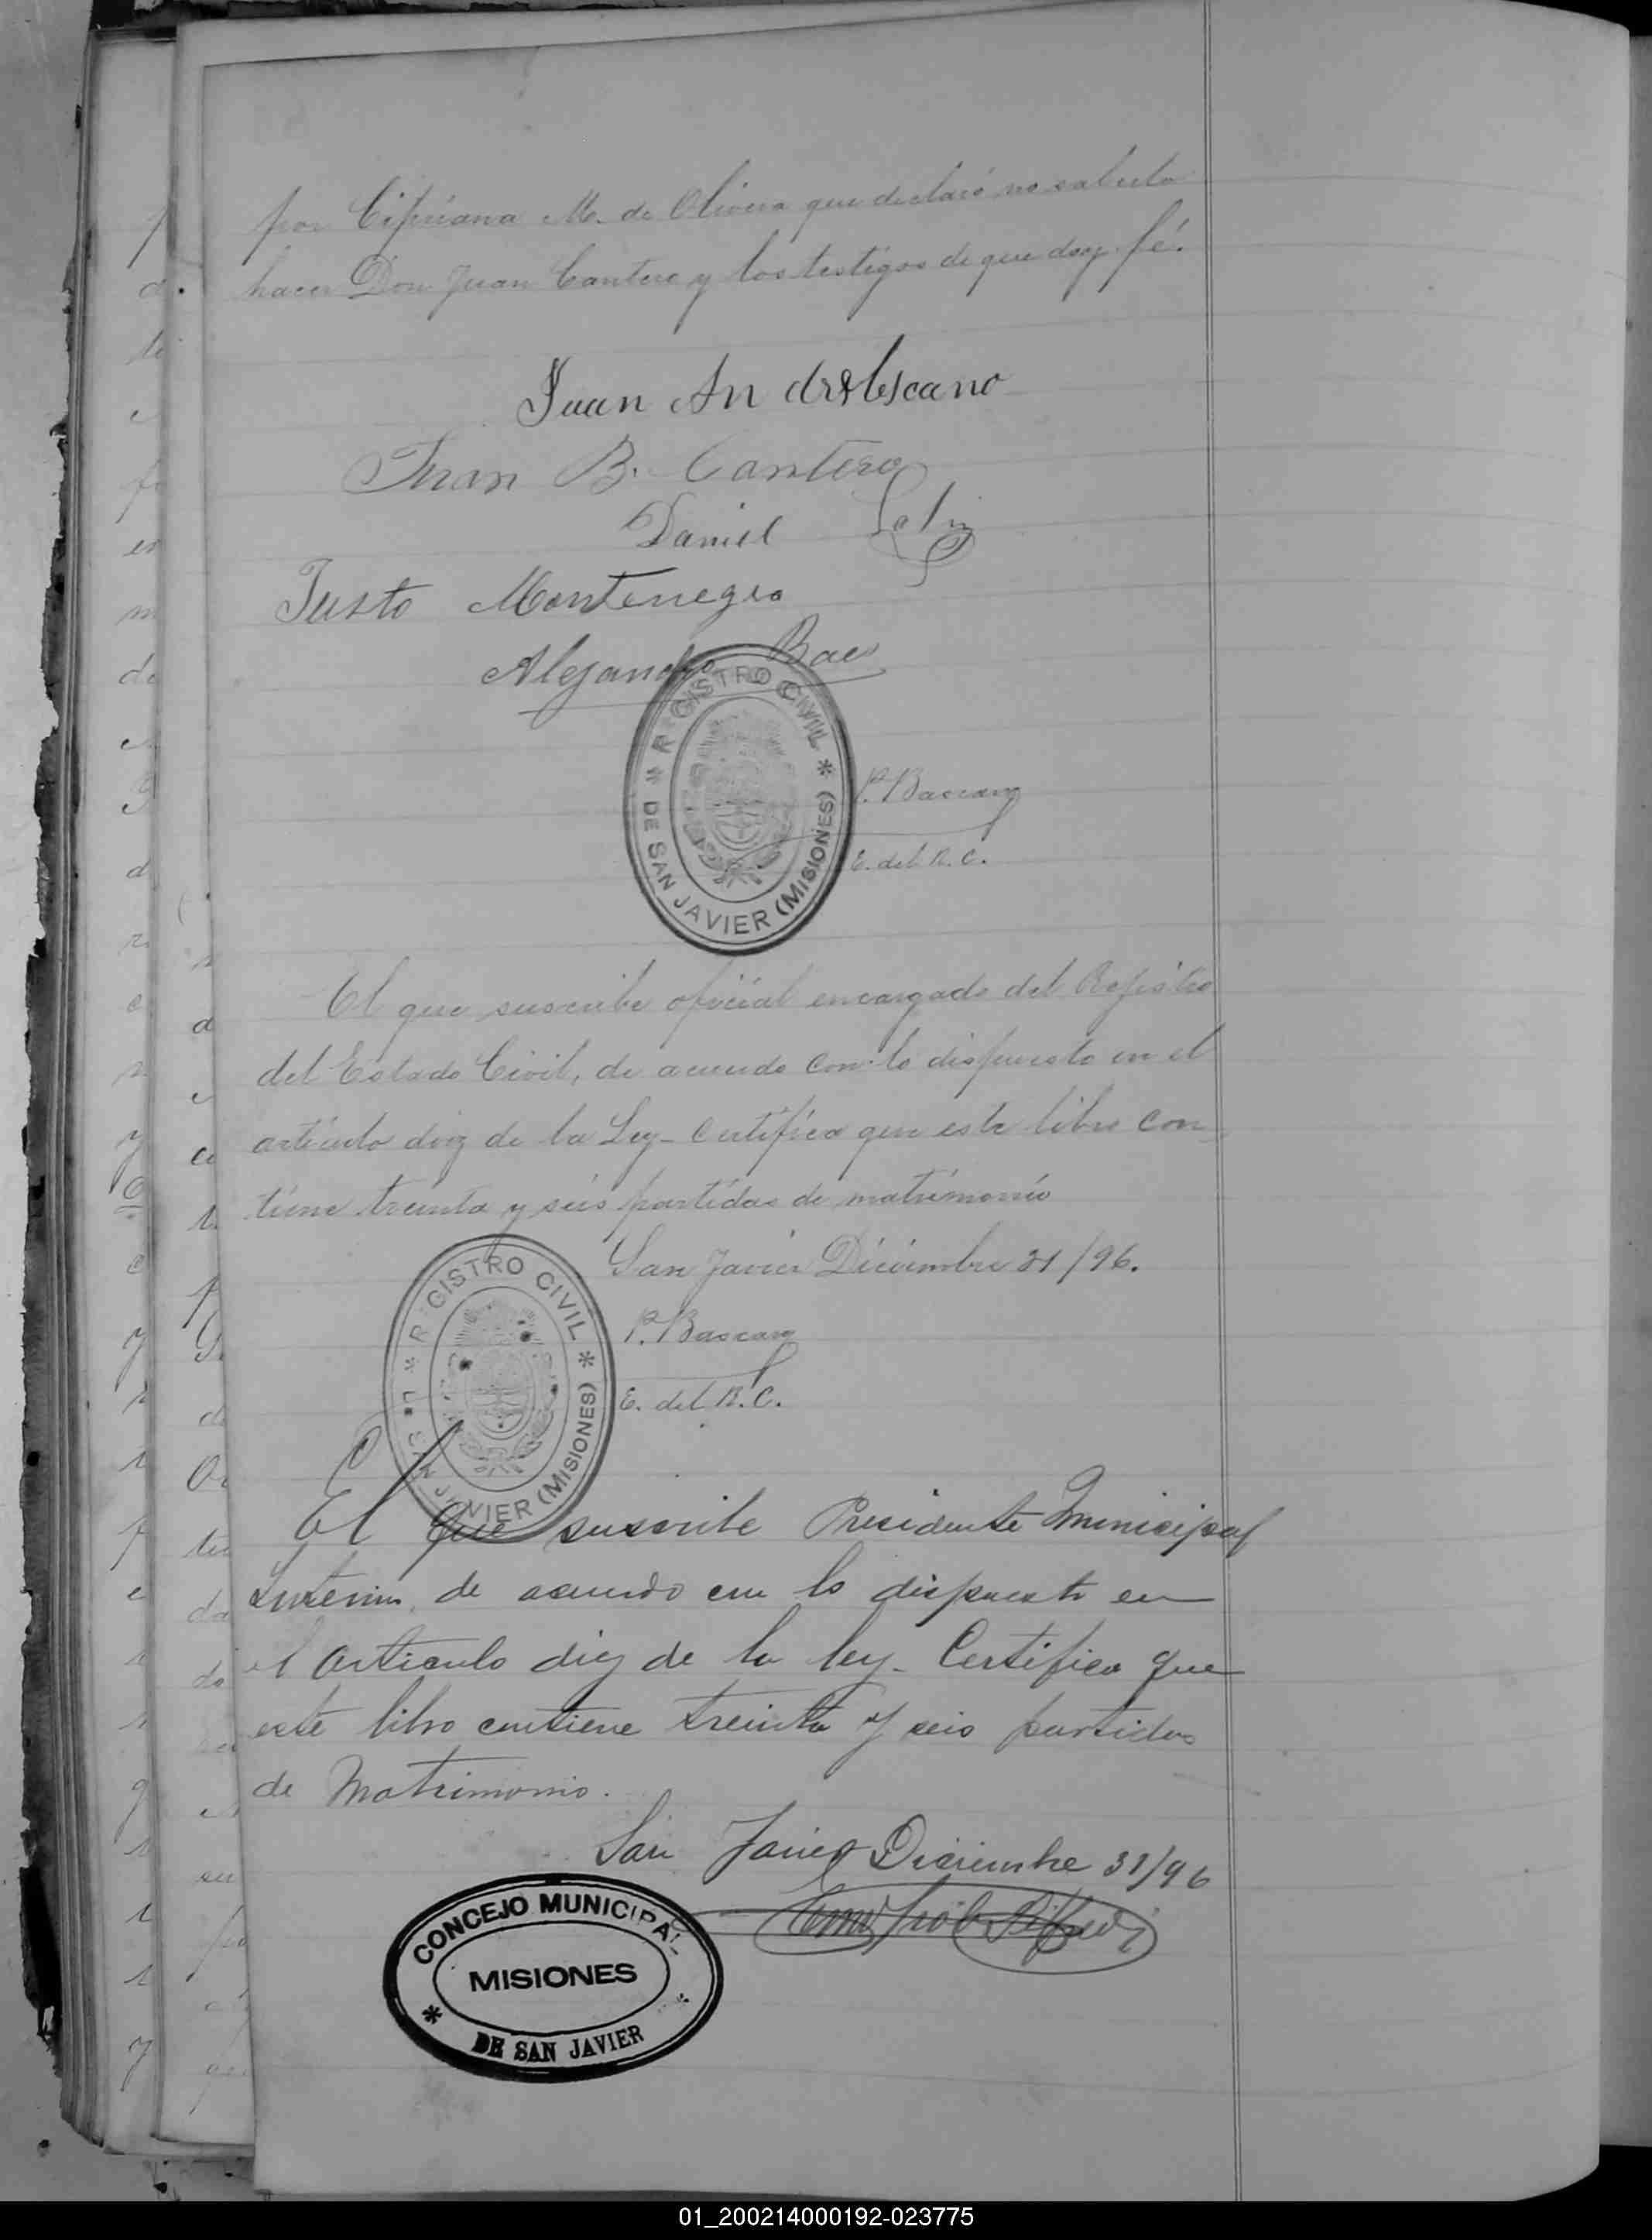 por Cipriana M. de Olivera que declaró no saberlo
hacer Don Juan Cantero y los testigos de que doy fé.
Juan An dres lescano
Juan B. Cantero
Daniel
Justo Montenegro
Alejandro Baes
REGISTRO CIVIL
DE SAN JAVIER (MISIONES)
P. Bascary
E. del R. C.
El que suscribe oficial encargado del Registro
del Estado Civil, de acuerdo con lo dispuesto en el
artículo diez de la Ley - Certifica que este libro con
tiene treinta y seis partidas de matrimonio
San Javier Diciembre 31/96.
R GISTRO CIVIL
JAVIER (MISIONES)
P. Bascary
E. del R. C.
El que suscribe Presidente Municipal
Interino, de acuerdo con lo dispuesto en
el articulo diez de la ley - Certifica que
este libro contiene treinta y seis partidas
de Matrimonio.
San Javier Diciembre 31/96
CONCEJO MUNICIPAL
MISIONES
DE SAN JAVIER
01_200214000192-023775